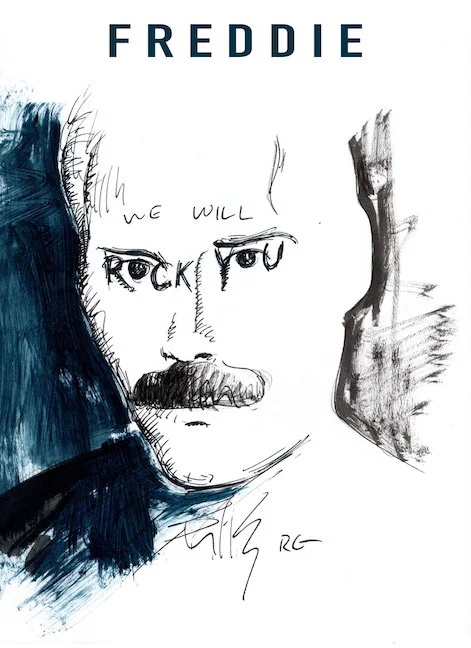 FREDDIE
WE WILL
ROCK YOU
RG